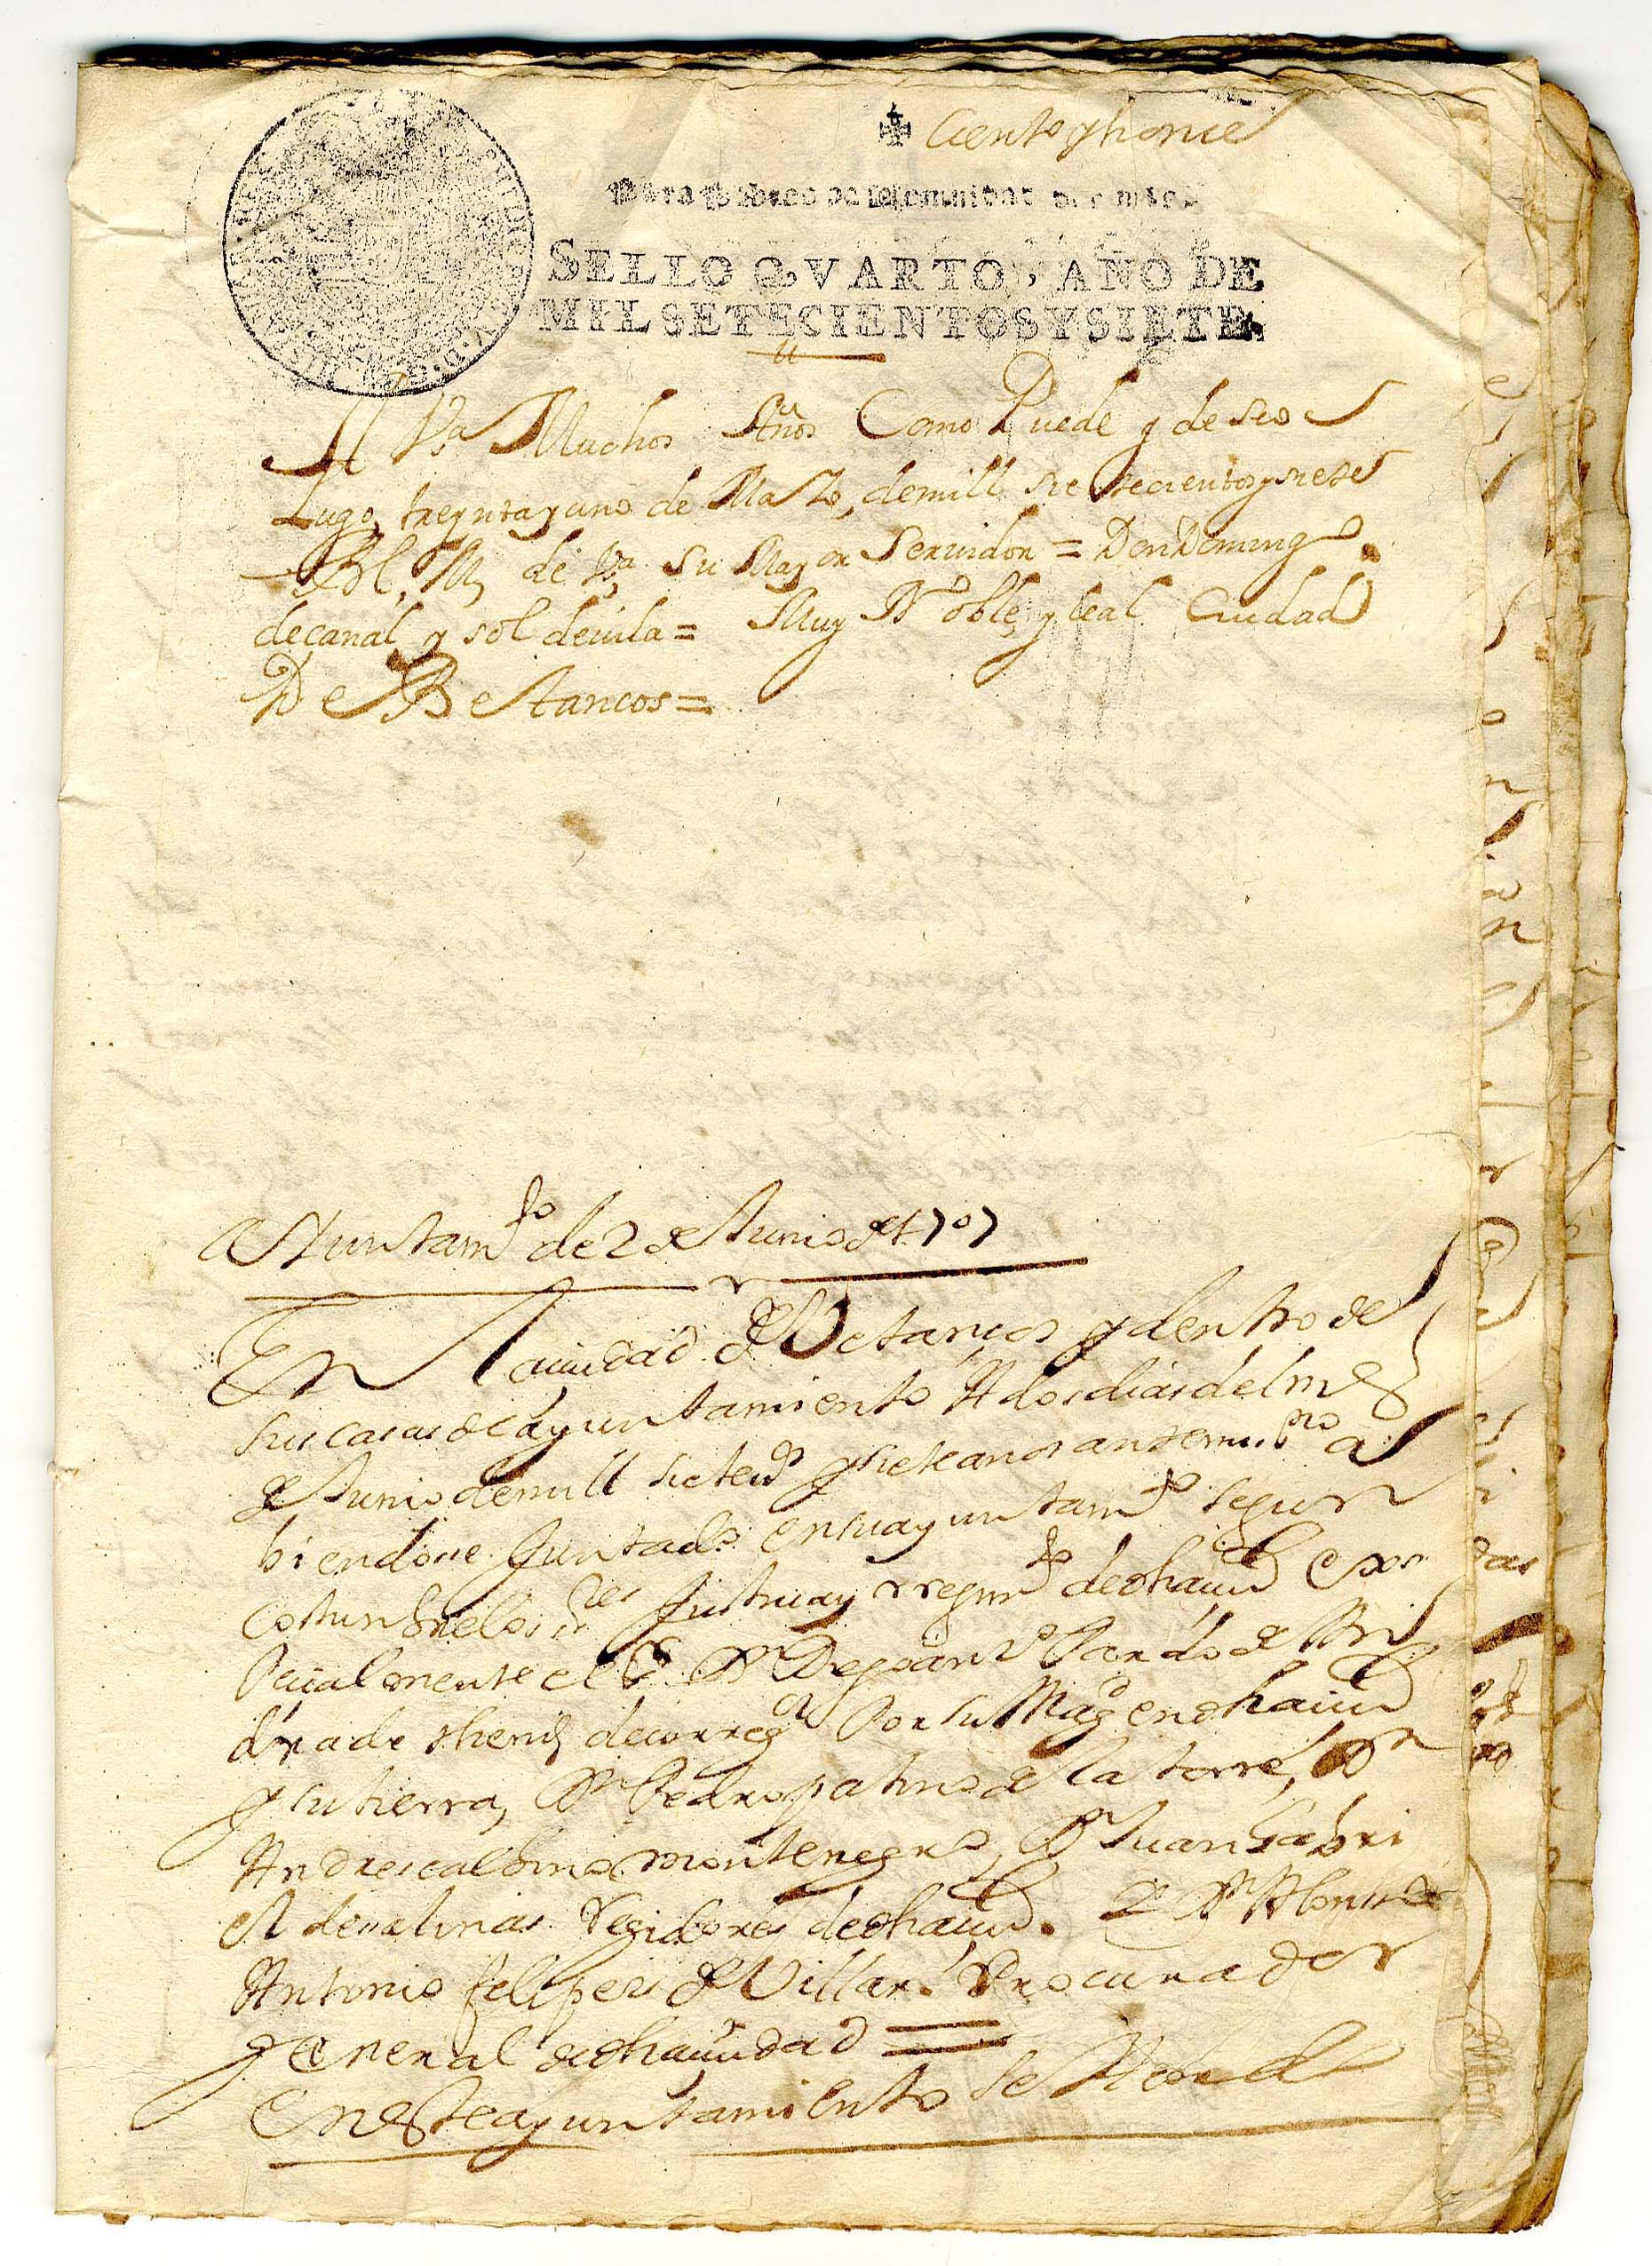 Ciento y honce
SELLO QVARTO, AÑO DE
MIL SETECIENTOS Y SIETE.
A Vs.ª Muchos Años Como Puede y deseo
Lugo, treynta y uno de Maio, de mill sietecientos y siete
BL. M, de Vs.ª su Mayor Servidor = Don Domingo
de canal y sol devila = Muy Noble y leal Ciudad
De Betancos =
Aiuntamto de 2 de Junio de 1707
En la ciudad de Vetanços y dentro de
sus casas de ayuntamiento A dos dias del mes
de Junio de mill setecos y siete anos
biendose Juntado en su ayuntamto segun
costunbre los sres Justicia y rregimto de dha ciud espe
cialmente el Sr Dn Diego anto Pardo de An
drade theniente de correxor Por su Magd en dha ciud
y su tierra, Dn Pedro patino de la torre, Dn
Andres calbino montenegro, Dn Juan Gabri
el de salinas Regidores de dha ciud. Dn Alonso
Antonio felipez de Villar. Procurador
general de dha ciudad =
En este ayuntamiento se